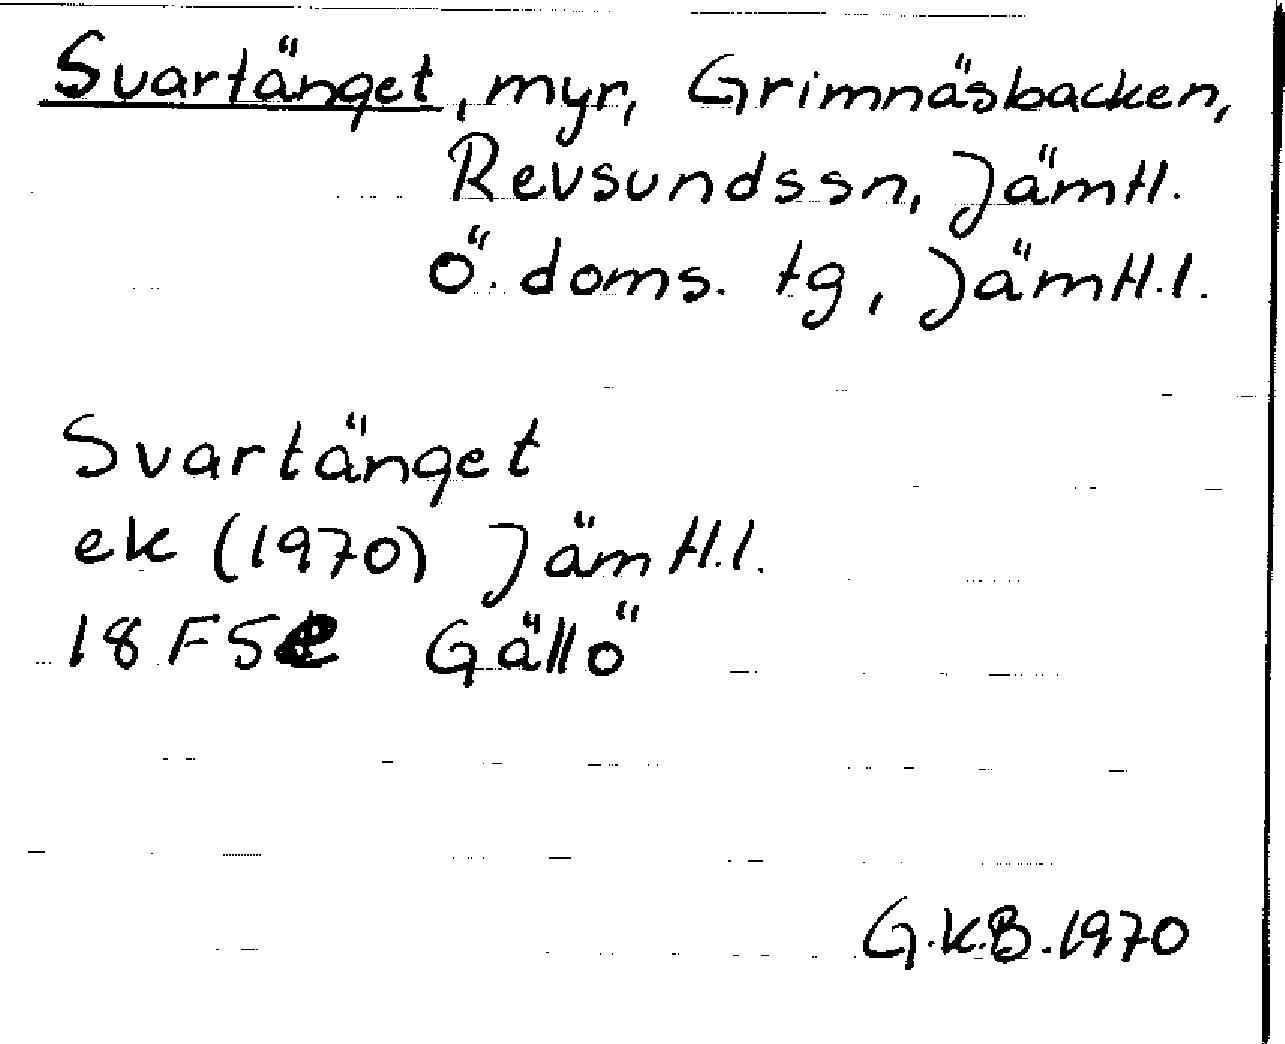 Svartänget, myr, Grimnäsbacken,
Revsundssn, Jämtl.
Ö. doms. tg, Jämtl.l.
Svartänget
ek (1970) Jämtl.l.
18 F 5e Gällö
G.K.B. 1970